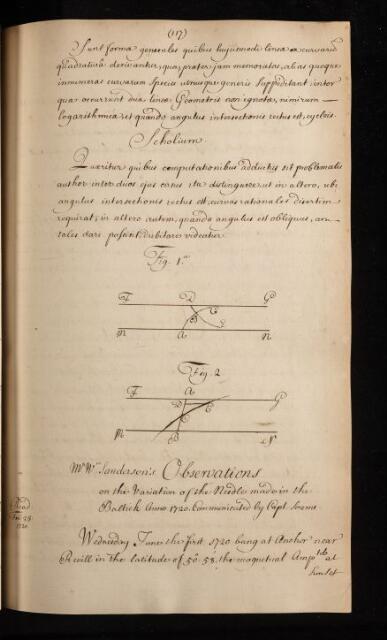 (17)
Sunt forma generales quibus hujusmodi linea curvarum
quadratura derivantur, quas præter jam memoratas, alias quoque
innumeras curvarum species utriusque generis suppeditant, inter
quas occurrunt duæ linea Geometris non ignotæ, nimirum
logarithmica et quando angulus intersectionis rectus est, cyclois.
Scholium
Quæritur quibus computationibus adductus sit problematis
author inter duos ejus casus ita distinguere, ut in altero, ubi
angulus intersectionis rectus est, curvas rationales disertim
requirat; in altero autem, quando angulus est obliquus, an
tales dari possint, dubitare videatur.
Fig. 1.
F D G
B C
E
M A N
Fig. 2
F A G
D E
C
M B N
Mr. Wm. Sanderson's Observations
on the Variation of the Needle made in the
Baltick Anno 1720. Communicated by Capt.
Read
28
1720
Wednesday June the first 1720 being at Anchor near
Revill in the latitude of 59. 58. the magnetical Ampltde at
Sun Set